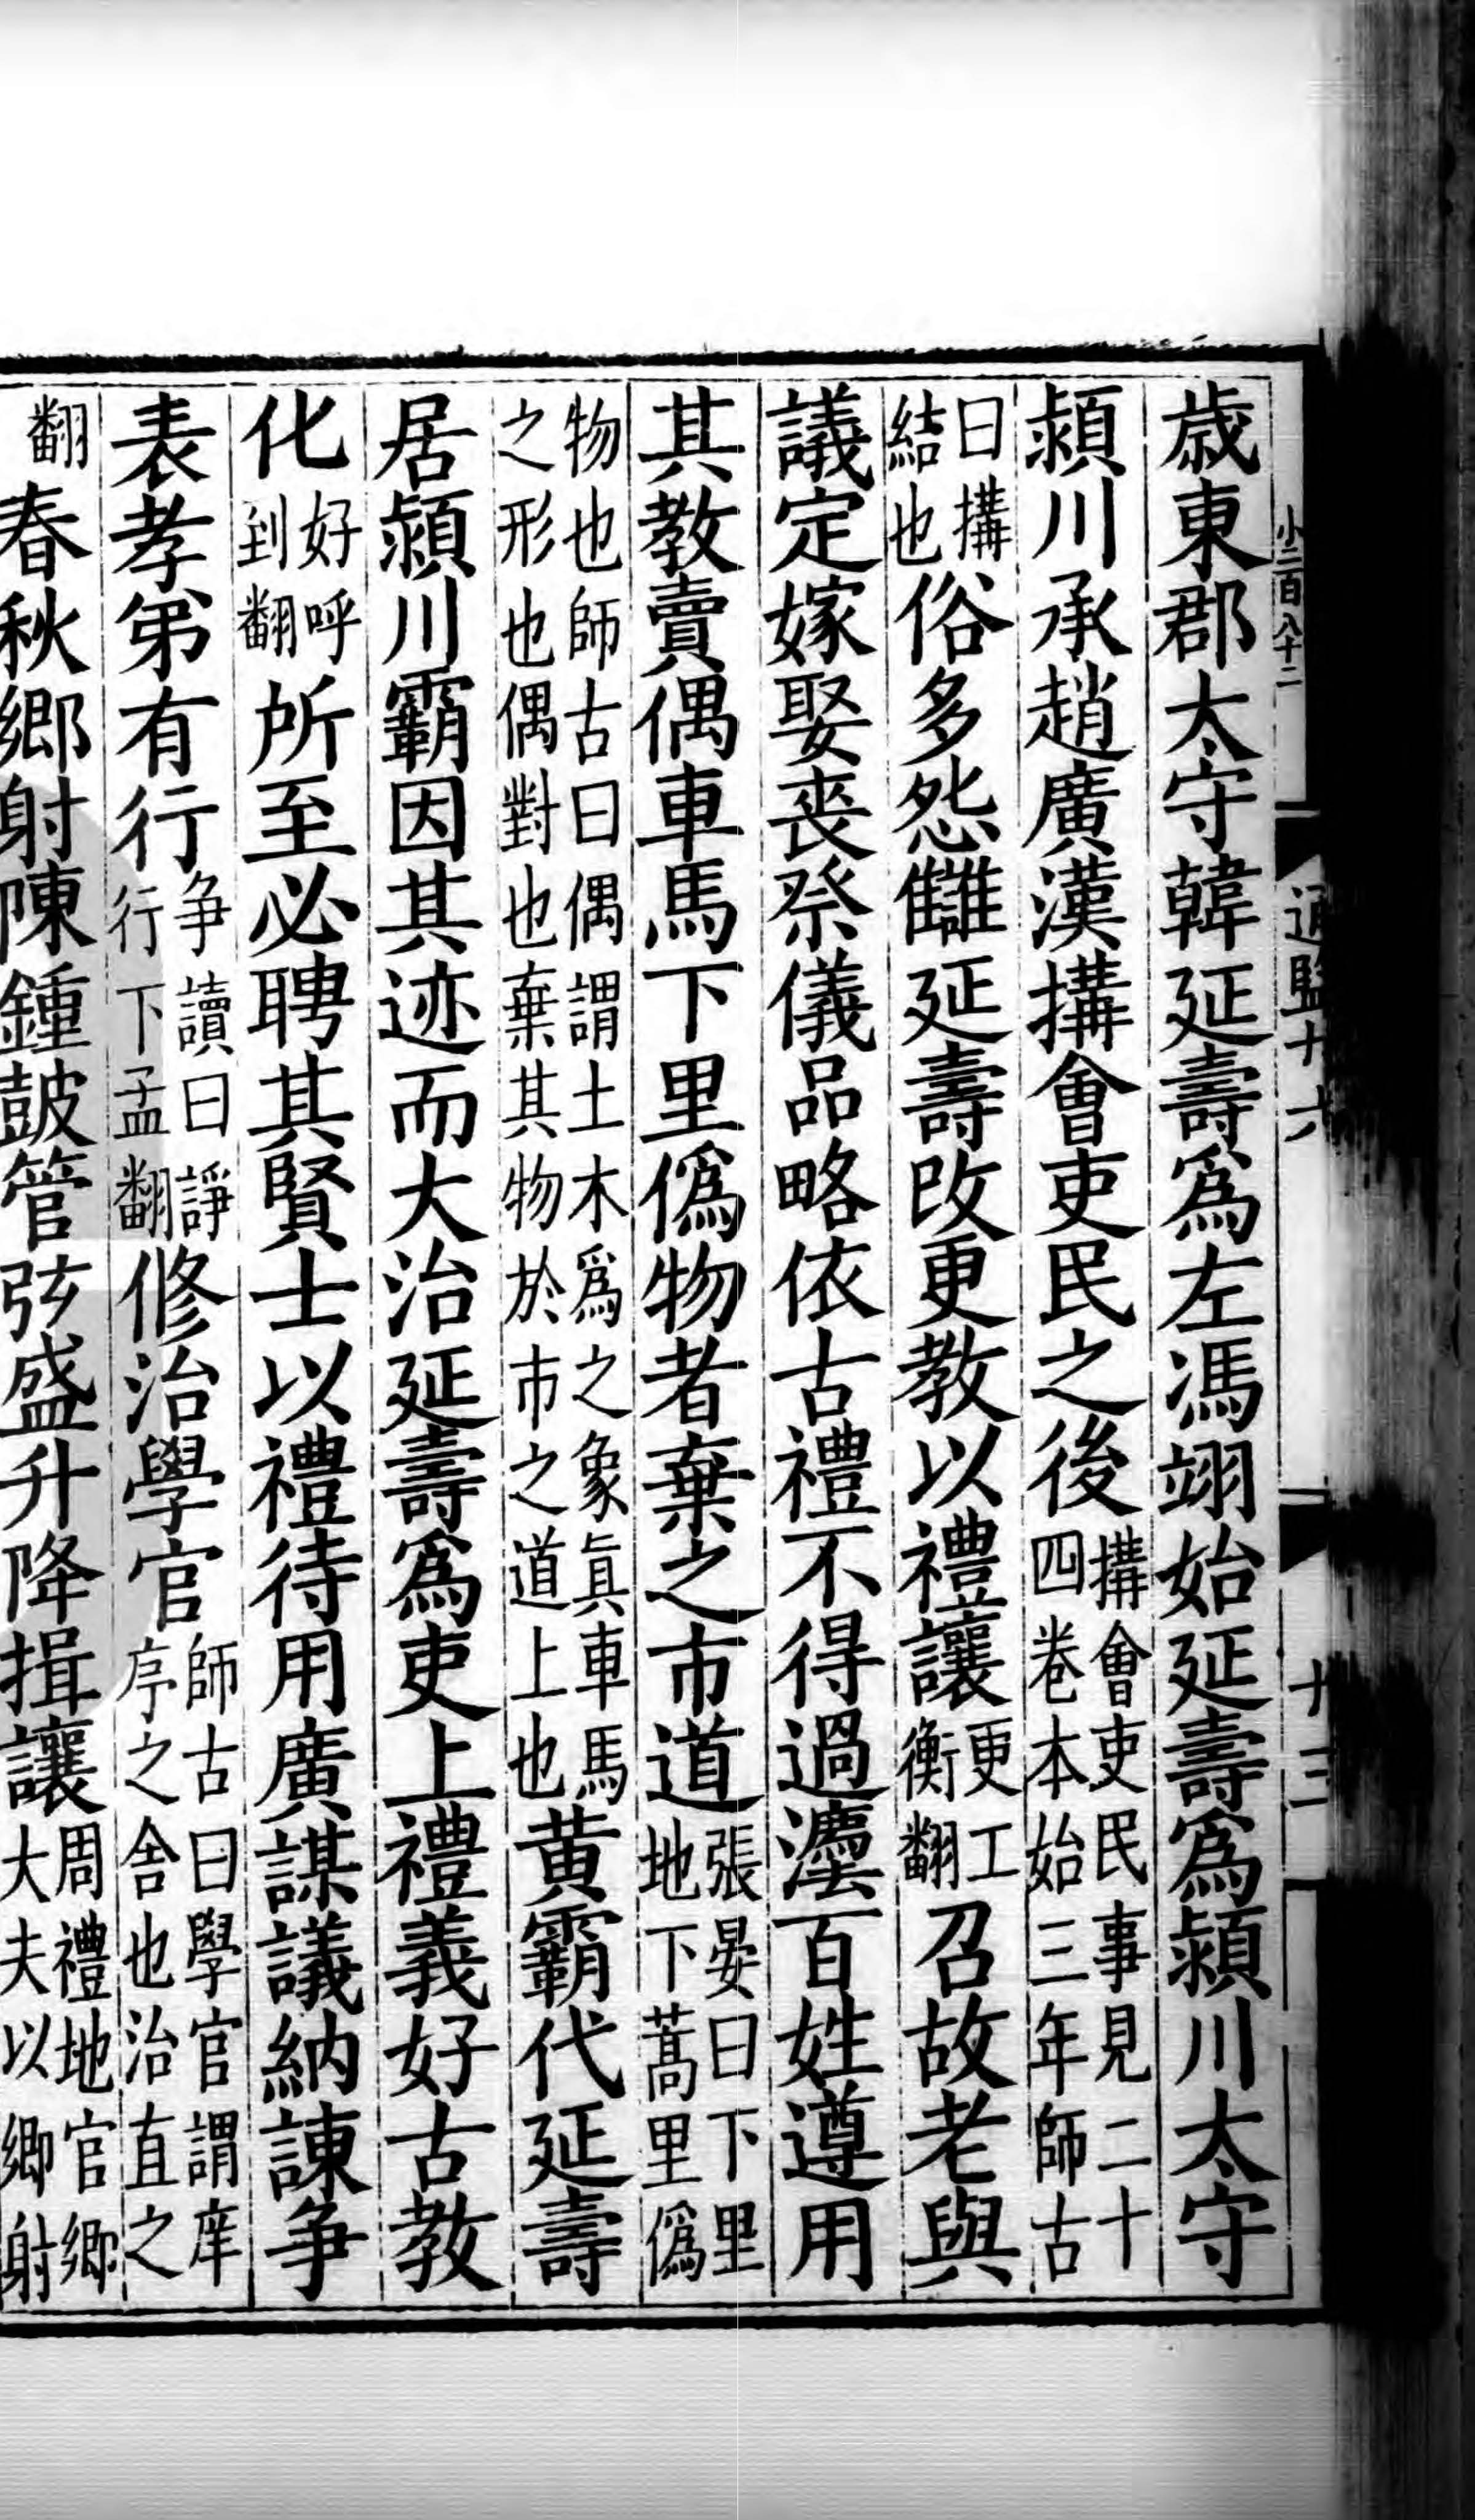 小二百八十二　通監十六　十三
歲東郡太守韓延壽爲左馮翊始延壽爲潁川太守
潁川承趙廣漢搆會吏民之後搆會吏民事見二十四卷本始三年師古
曰搆結也俗多怨讎延壽改更教以禮讓更工衡翻召故老與
議定嫁娶喪祭儀品略依古禮不得過灋百姓遵用
其教賣偶車馬下里僞物者棄之市道張晏曰下里地下蒿里僞
物也師古曰偶謂土木爲之象眞車馬之形也偶對也棄其物於市之道上也黄霸代延壽
居潁川霸因其迹而大治延壽爲吏上禮義好古教
化好呼到翻所至必聘其賢士以禮待用廣謀議納諫爭
表孝弟有行爭讀曰諍行下孟翻修治學官師古曰學官謂庠序之舍也治直之
翻春秋鄉射陳鍾鼓管弦盛升降揖讓周禮地官鄉大夫以鄉射